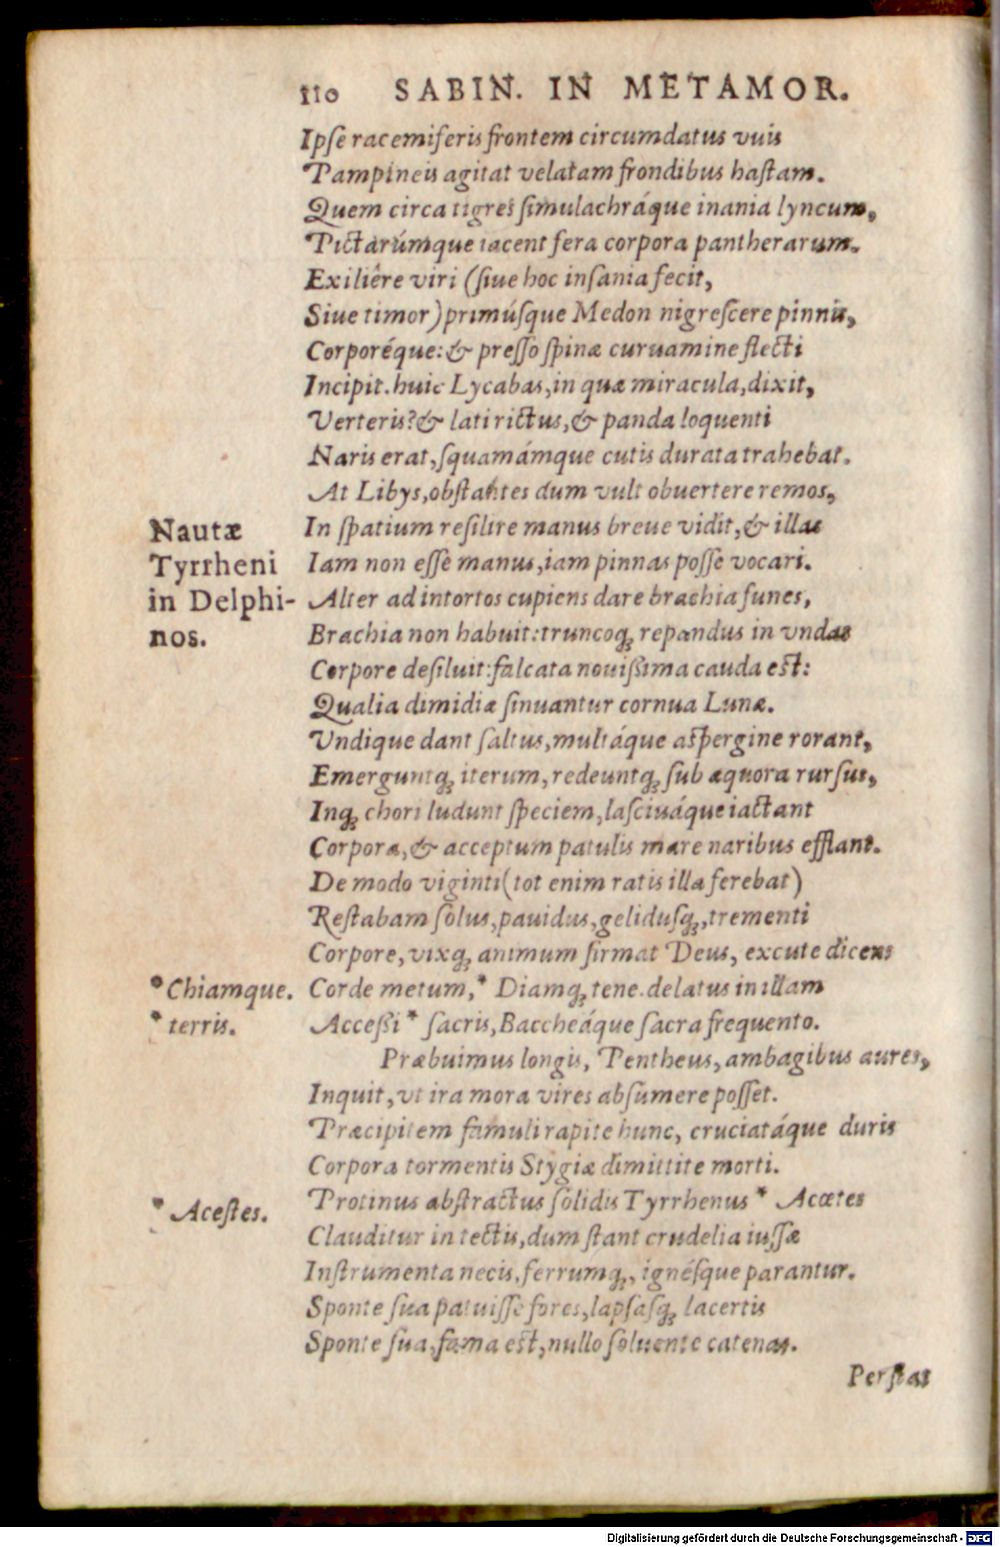 110 SABIN. IN METAMOR.
Ipſe racemiferis frontem circumdatus vuis
Pampineis agitat velatam frondibus haſtam.
Quem circa tigres ſimulachráque inania lyncum,
Pictarúmque iacent fera corpora pantherarum.
Exiliêre viri (ſiue hoc inſania fecit,
Siue timor) primúſque Medon nigreſcere pinnis,
Corporéque: & preſſo ſpinæ curuamine flecti
Incipit. huic Lycabas, in quæ miracula, dixit,
Verteris? & lati rictus, & panda loquenti
Naris erat, ſquamámque cutis durata trahebat.
At Libys, obſtantes dum vult obuertere remos,
Nautæ Tyrrheni in Delphinos.
In ſpatium reſilire manus breue vidit, & illas
Iam non eſſe manus, iam pinnas poſſe vocari.
Alter ad intortos cupiens dare brachia funes,
Brachia non habuit: truncoq; repandus in vndas
Corpore deſiluit: falcata nouißima cauda eſt:
Qualia dimidiæ ſinuantur cornua Lunæ.
Vndique dant ſaltus, multáque aſpergine rorant,
Emerguntq; iterum, redeuntq; ſub æquora rurſus,
Inq; chori ludunt ſpeciem, laſciuáque iactant
Corpora, & acceptum patulis mare naribus efflant.
De modo viginti (tot enim ratis illa ferebat)
Reſtabam ſolus, pauidus, geliduſq;, trementi
Corpore, vixq; animum firmat Deus, excute dicens
* Chiamque. Corde metum, * Diamq; tene. delatus in illam
* terris. Acceßi * ſacris, Baccheáque ſacra frequento.
Præbuimus longis, Pentheus, ambagibus aures,
Inquit, vt ira mora vires abſumere poſſet.
Præcipitem famuli rapite hunc, cruciatáque duris
Corpora tormentis Stygiæ dimittite morti.
Protinus abſtractus ſolidis Tyrrhenus * Acœtes
* Aceſtes.
Clauditur in tectis, dum ſtant crudelia iuſſæ
Inſtrumenta necis, ferrumq;, ignéſque parantur.
Sponte ſua patuiſſe fores, lapſaſq; lacertis
Sponte ſua, fama eſt, nullo ſoluente catenas.
Perſtat
Digitalisierung gefördert durch die Deutsche Forschungsgemeinschaft - DFG